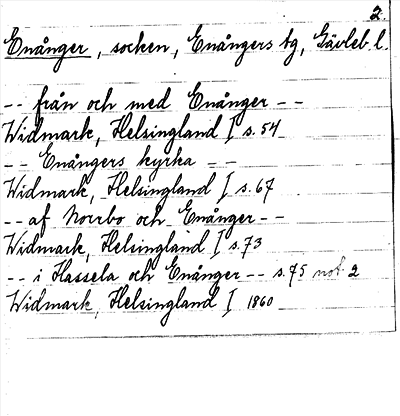 2.
Enånger, socken, Enångers tg, Gävleb. l.
-- från och med Enånger --
Widmark, Helsingland I s. 54
-- Enångers kyrka --
Widmark, Helsingland I s. 67
-- af Norrbo och Enånger --
Widmark, Helsingland I s. 73
-- i Hassela och Enånger -- s. 75 not 2
Widmark, Helsingland I 1860